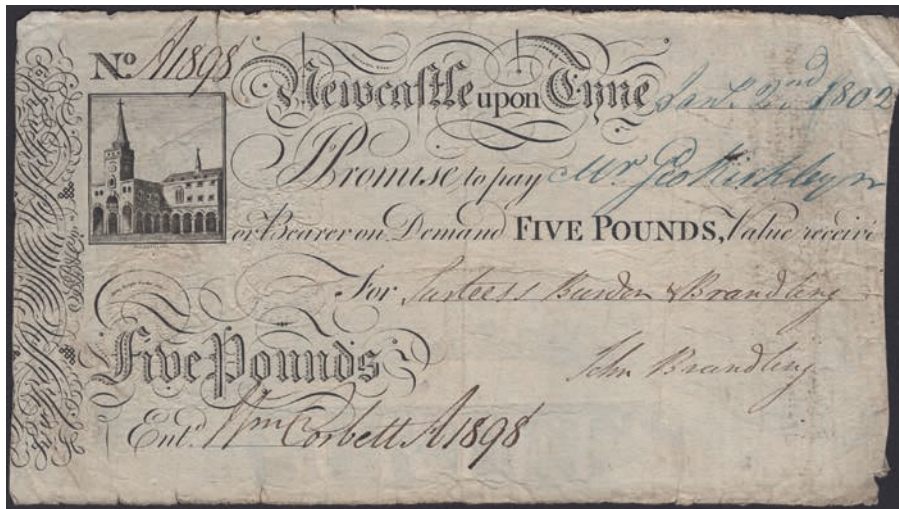 No. A1898
Newcastle upon Tyne Jany. 2nd 1802
I Promise to pay Mr. Geo Kirkley
or Bearer on Demand FIVE POUNDS, Value receiv
For Surtees Burdon & Brandling
John Brandling
Five Pounds
Entd. Wm Corbett A1898